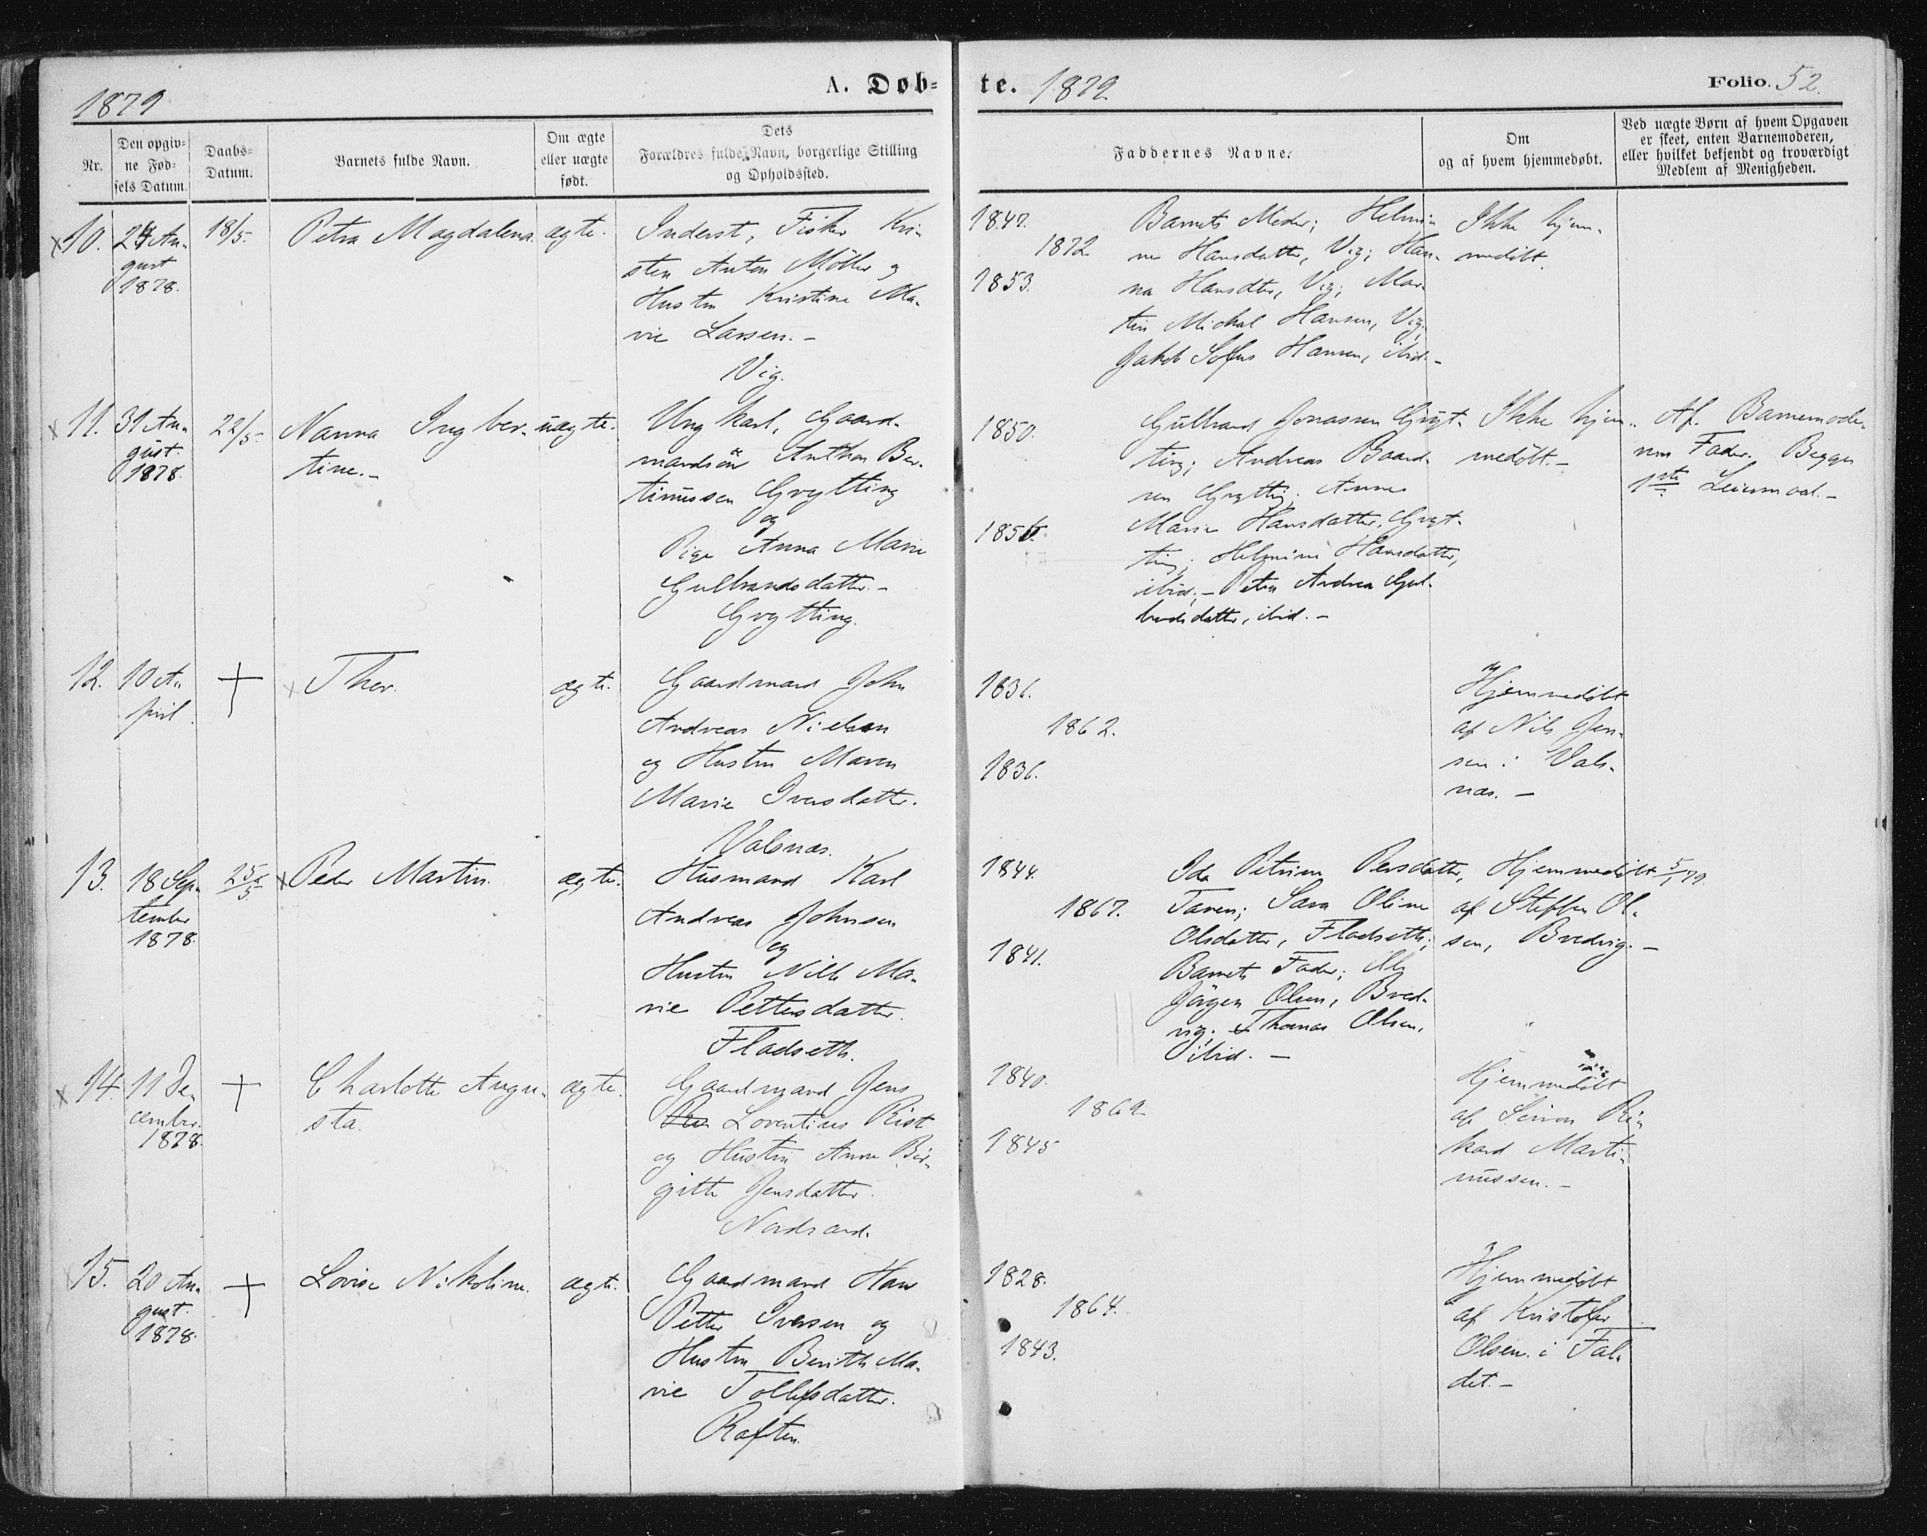 1879
A. Døb-
te. 1879.
Folio. 52.
Nr.
Den opgiv-
ne Fød-
sels Datum.
Daabs-
Datum.
Barnets fulde Navn.
Om ægte
eller uægte
født.
Dets
Forældres fulde Navn, borgerlige Stilling
og Opholdssted.
Faddernes Navne.
Om
og af hvem hjemmedøbt.
Ved uægte Børn af hvem Opgaven
er skeet, enten Barnemoderen,
eller hvilket bekjendt og troværdigt
Medlem af Menigheden.
10.
24 Au-
gust
1878.
18/5.
Petra Magdalena
ægte.
Inderst, Fisker Kri-
sten Anton Möller og
Hustru Kristine Ma-
rie Larsen. -
Vig.
1847.
1872
1853.
Barnets Moder; Helmi-
ne Hansdatter, Vig; Han-
na Hansdtr, Vig; Mar-
tin Mikal Hansen, Vig;
Jakob Sofus Hansen, ibid. -
Ikke hjem-
medöbt.
11.
31 Au-
gust.
1878.
22/5
Nanna Ingber-
tine. -
uægte.
Ungkarl, Gaard-
mandsön Anthon Ber-
tinussen Grytting
og
Pige Anna Marie
Gulbrandsdatter. -
Grytting.
1850.
1856.
Gulbrand Jonassen Gryt-
ting; Andreas Baard-
sen Grytting; Anne
Marie Hansdatter, Gryt-
ting; Helmine Hansdatter,
ibid; - Petra Andrea Gul-
brandsdatter, ibid. -
Ikke hjem-
medöbt. -
Af Barnemode-
rens Fader. Begges
1ste Leiermaal. -
12.
10 A-
pril.
+
Thor.
ægte.
Gaardmand John
Andreas Nielsen
og Hustru Maren
Marie Iversdatter.
Valsnæs.
1836.
1862.
1836.
Hjemmedöbt
af Nils Jen-
sen i Vals-
næs. -
13.
18 Sep-
tember
1878.
25/5
Peder Martin.
ægte.
Husmand Karl
Andreas Johnsen
og
Hustru Nille Ma-
rie Pettersdatter.
Fladseth.
1844.
1867.
1841.
Ida Petrine Persdatter,
Taren; Sara Oline
Olsdatter, Fladseth;
Barnets Fader; Ole
Jörgen Olsen, Bred-
vig; Thomas Olsen,
ibid. -
Hjemmedöbt 5/1 79.
af Steffen Ol-
sen, Bredvig. -
14.
11 De-
cember.
1878.
+
Charlotte Augu-
sta.
ægte.
Gaardmand Jens
Lorentius Rist
og Hustru Anne Bir-
gitte Jensdatter.
Nordsand.
1840.
1862
1845
Hjemmedöbt
af Simon Ri-
kard Marti-
nussen. -
15.
20 Au-
gust.
1878.
+
Lovise Nikoline.
ægte.
Gaardmand Hans
Petter Iversen og
Hustru Berith Ma-
rie Tollefsdatter.
Raften.
1828.
1864.
1843.
Hjemmedöbt
af Kristofer
Olsen i Fal-
det. -